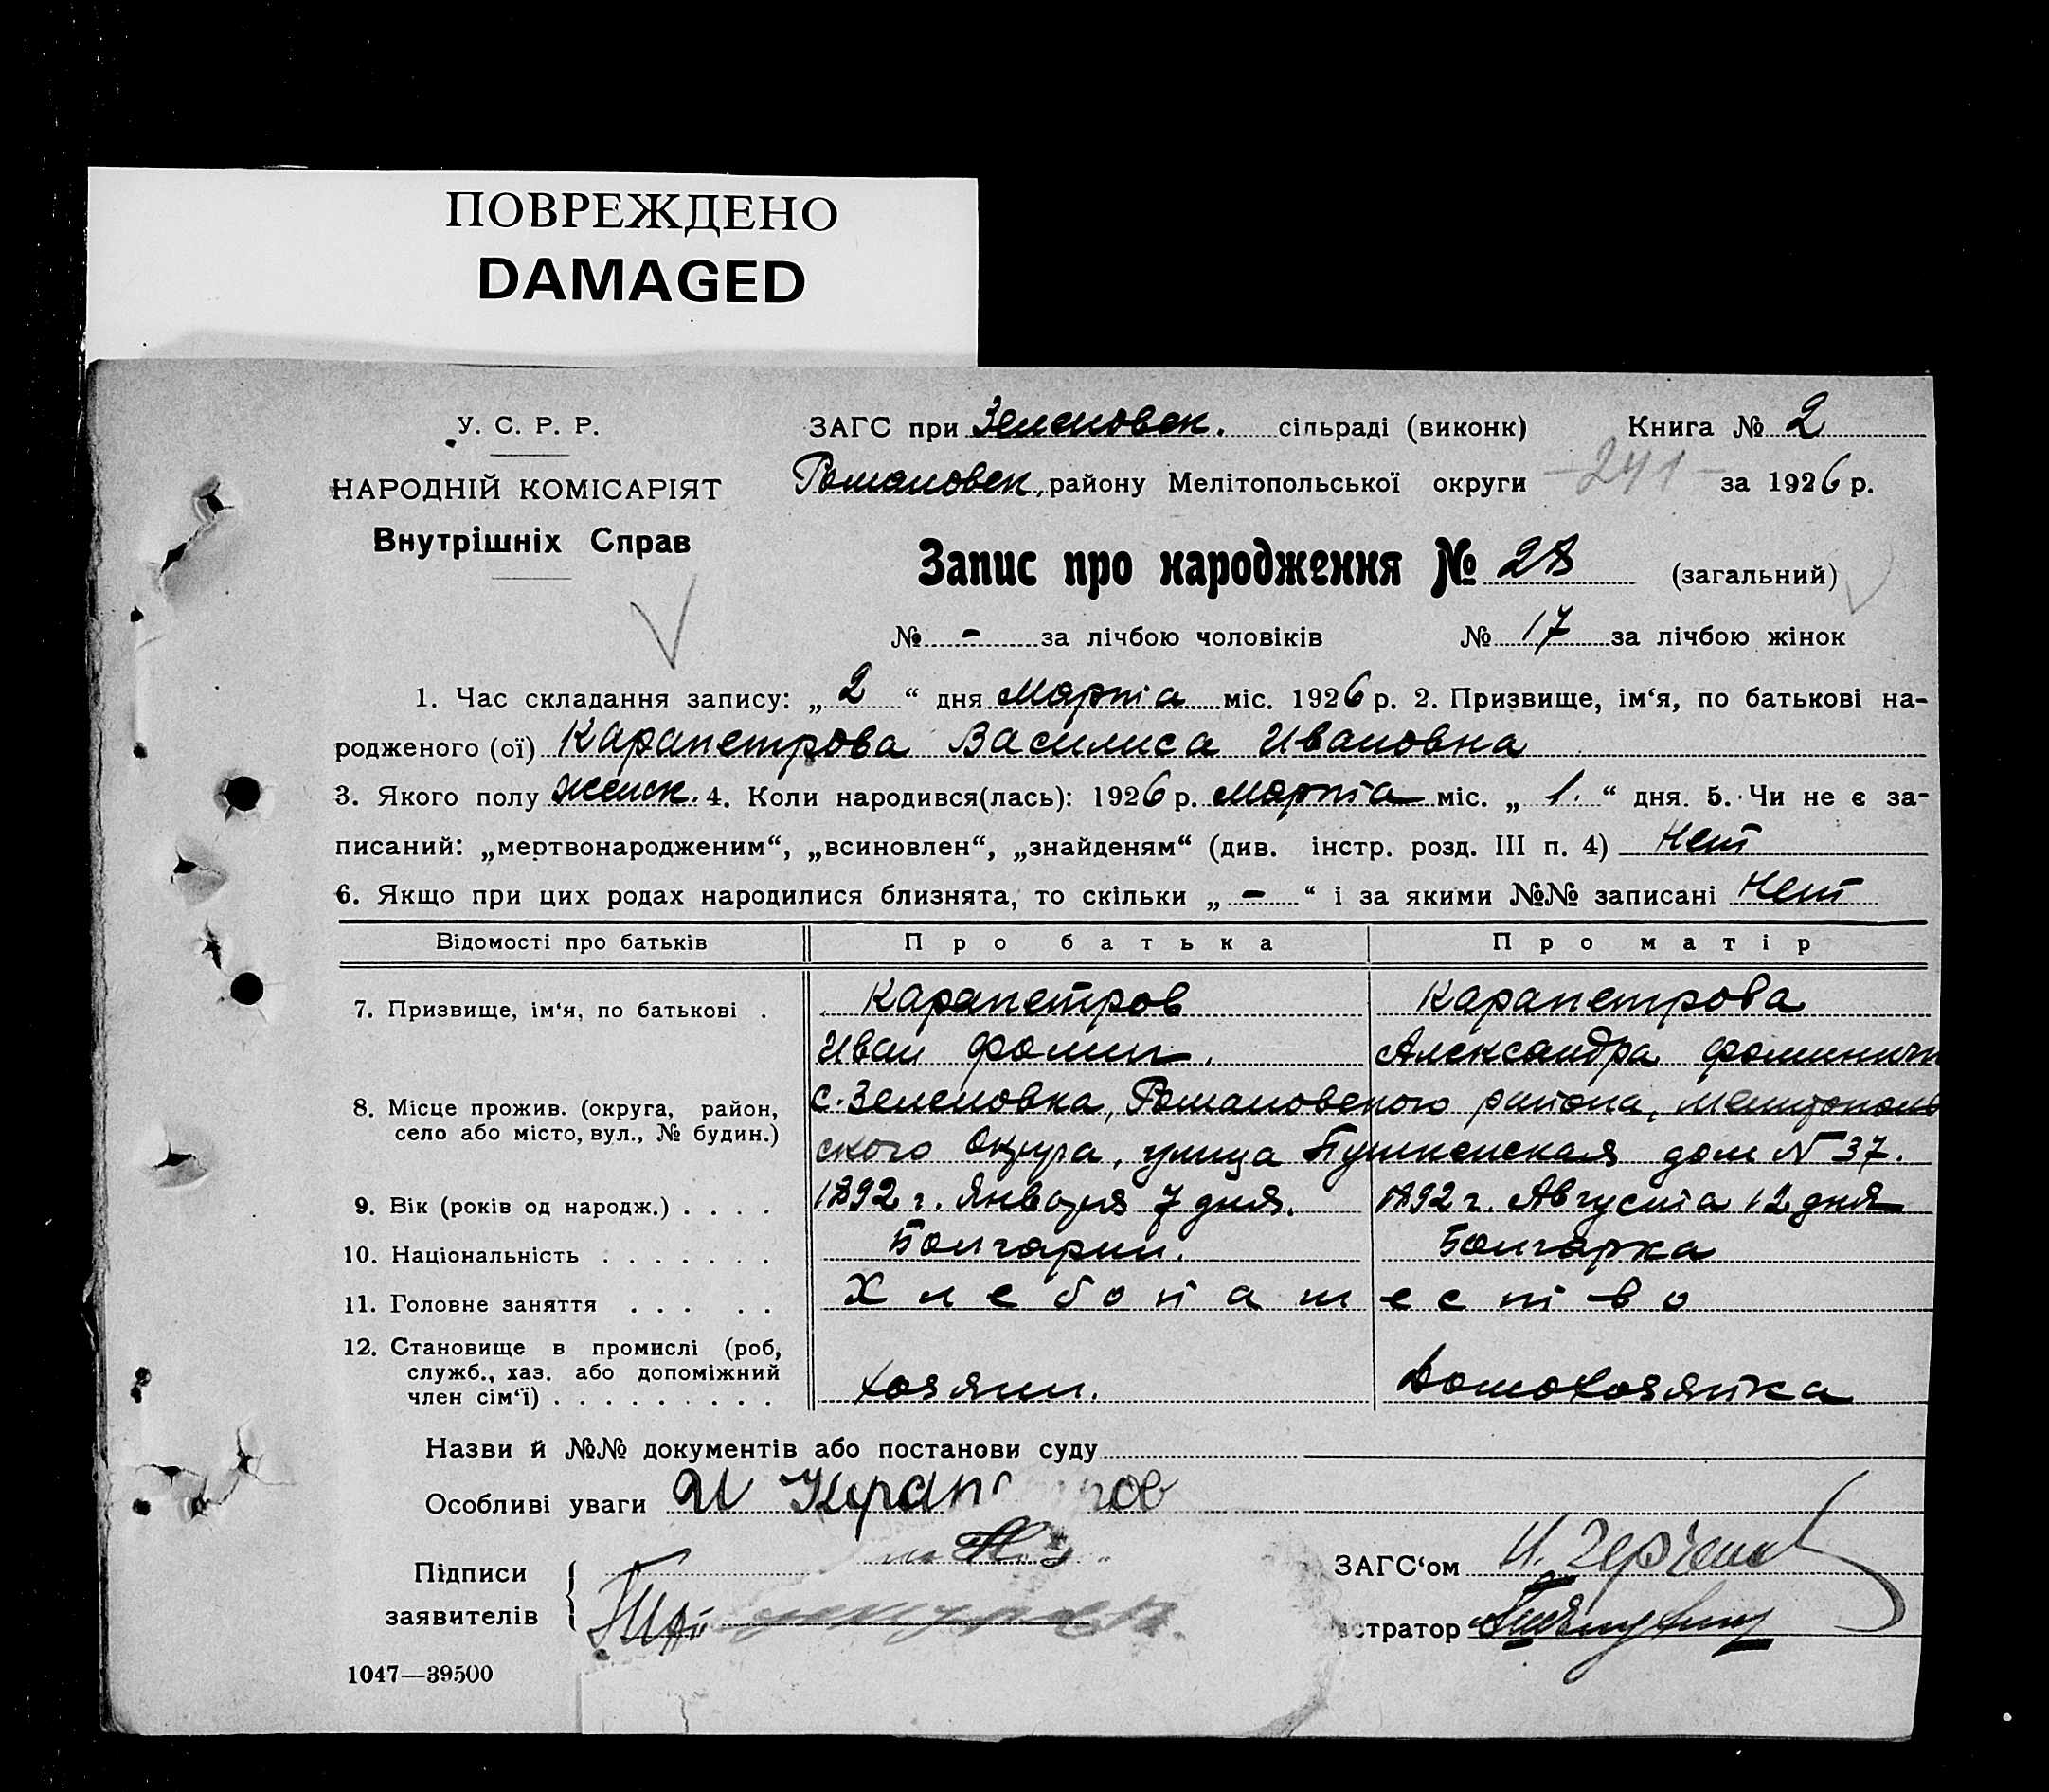 ПОВРЕЖДЕНО
DAMAGED
У. С. Р. Р.
НАРОДНІЙ КОМІСАРІЯТ
Внутрішніх Справ
ЗАГС при Зеленовск. сільраді (виконк) Книга № 2
Романовск. району Мелітопольської округи -241- за 1926 р.
Запис про народження № 28 (загальний)
№ - за лічбою чоловіків № 17 за лічбою жінок
1. Час складання запису: „ 2 “ дня Марта міс. 1926 р. 2. Призвище, ім‘я, по батькові на-
родженого (ої) Карапетрова Василиса Ивановна
3. Якого полу женск. 4. Коли народився(лась): 1926 р. Марта міс. „ 1. “ дня. 5. Чи не є за-
писаний: „мертвонародженим“, „всиновлен“, „знайденям“ (див. інстр. розд. III п. 4) Нет
6. Якщо при цих родах народилися близнята, то скільки „ - “ і за якими №№ записані Нет
Відомості про батьків Про батька Про матір
7. Призвище, ім‘я, по батькові . Карапетров Карапетрова
Иван Фомич. Александра
8. Місце прожив. (округа, район, село або місто, вул., № будин.) с. Зеленовка, Романовского района, Мелитополь
ского Округа, улица дом № 37.
9. Вік (років од народж.) . . . . 1892 г. Января 7 дня. 1892 г. Августа 12 дня
10. Національність . . . . . . . Болгарин. Болгарка
11. Головне заняття . . . . . Хлебопашество
12. Становище в промислі (роб, служб., хаз. або допоміжний член сім‘ї) . . . . . . . . . Хозяин. Домохозяйка
Назви й №№ документів або постанови суду
Особливі уваги И
Підписи
заявителів
ЗАГС‘ом
стратор
1047—39500